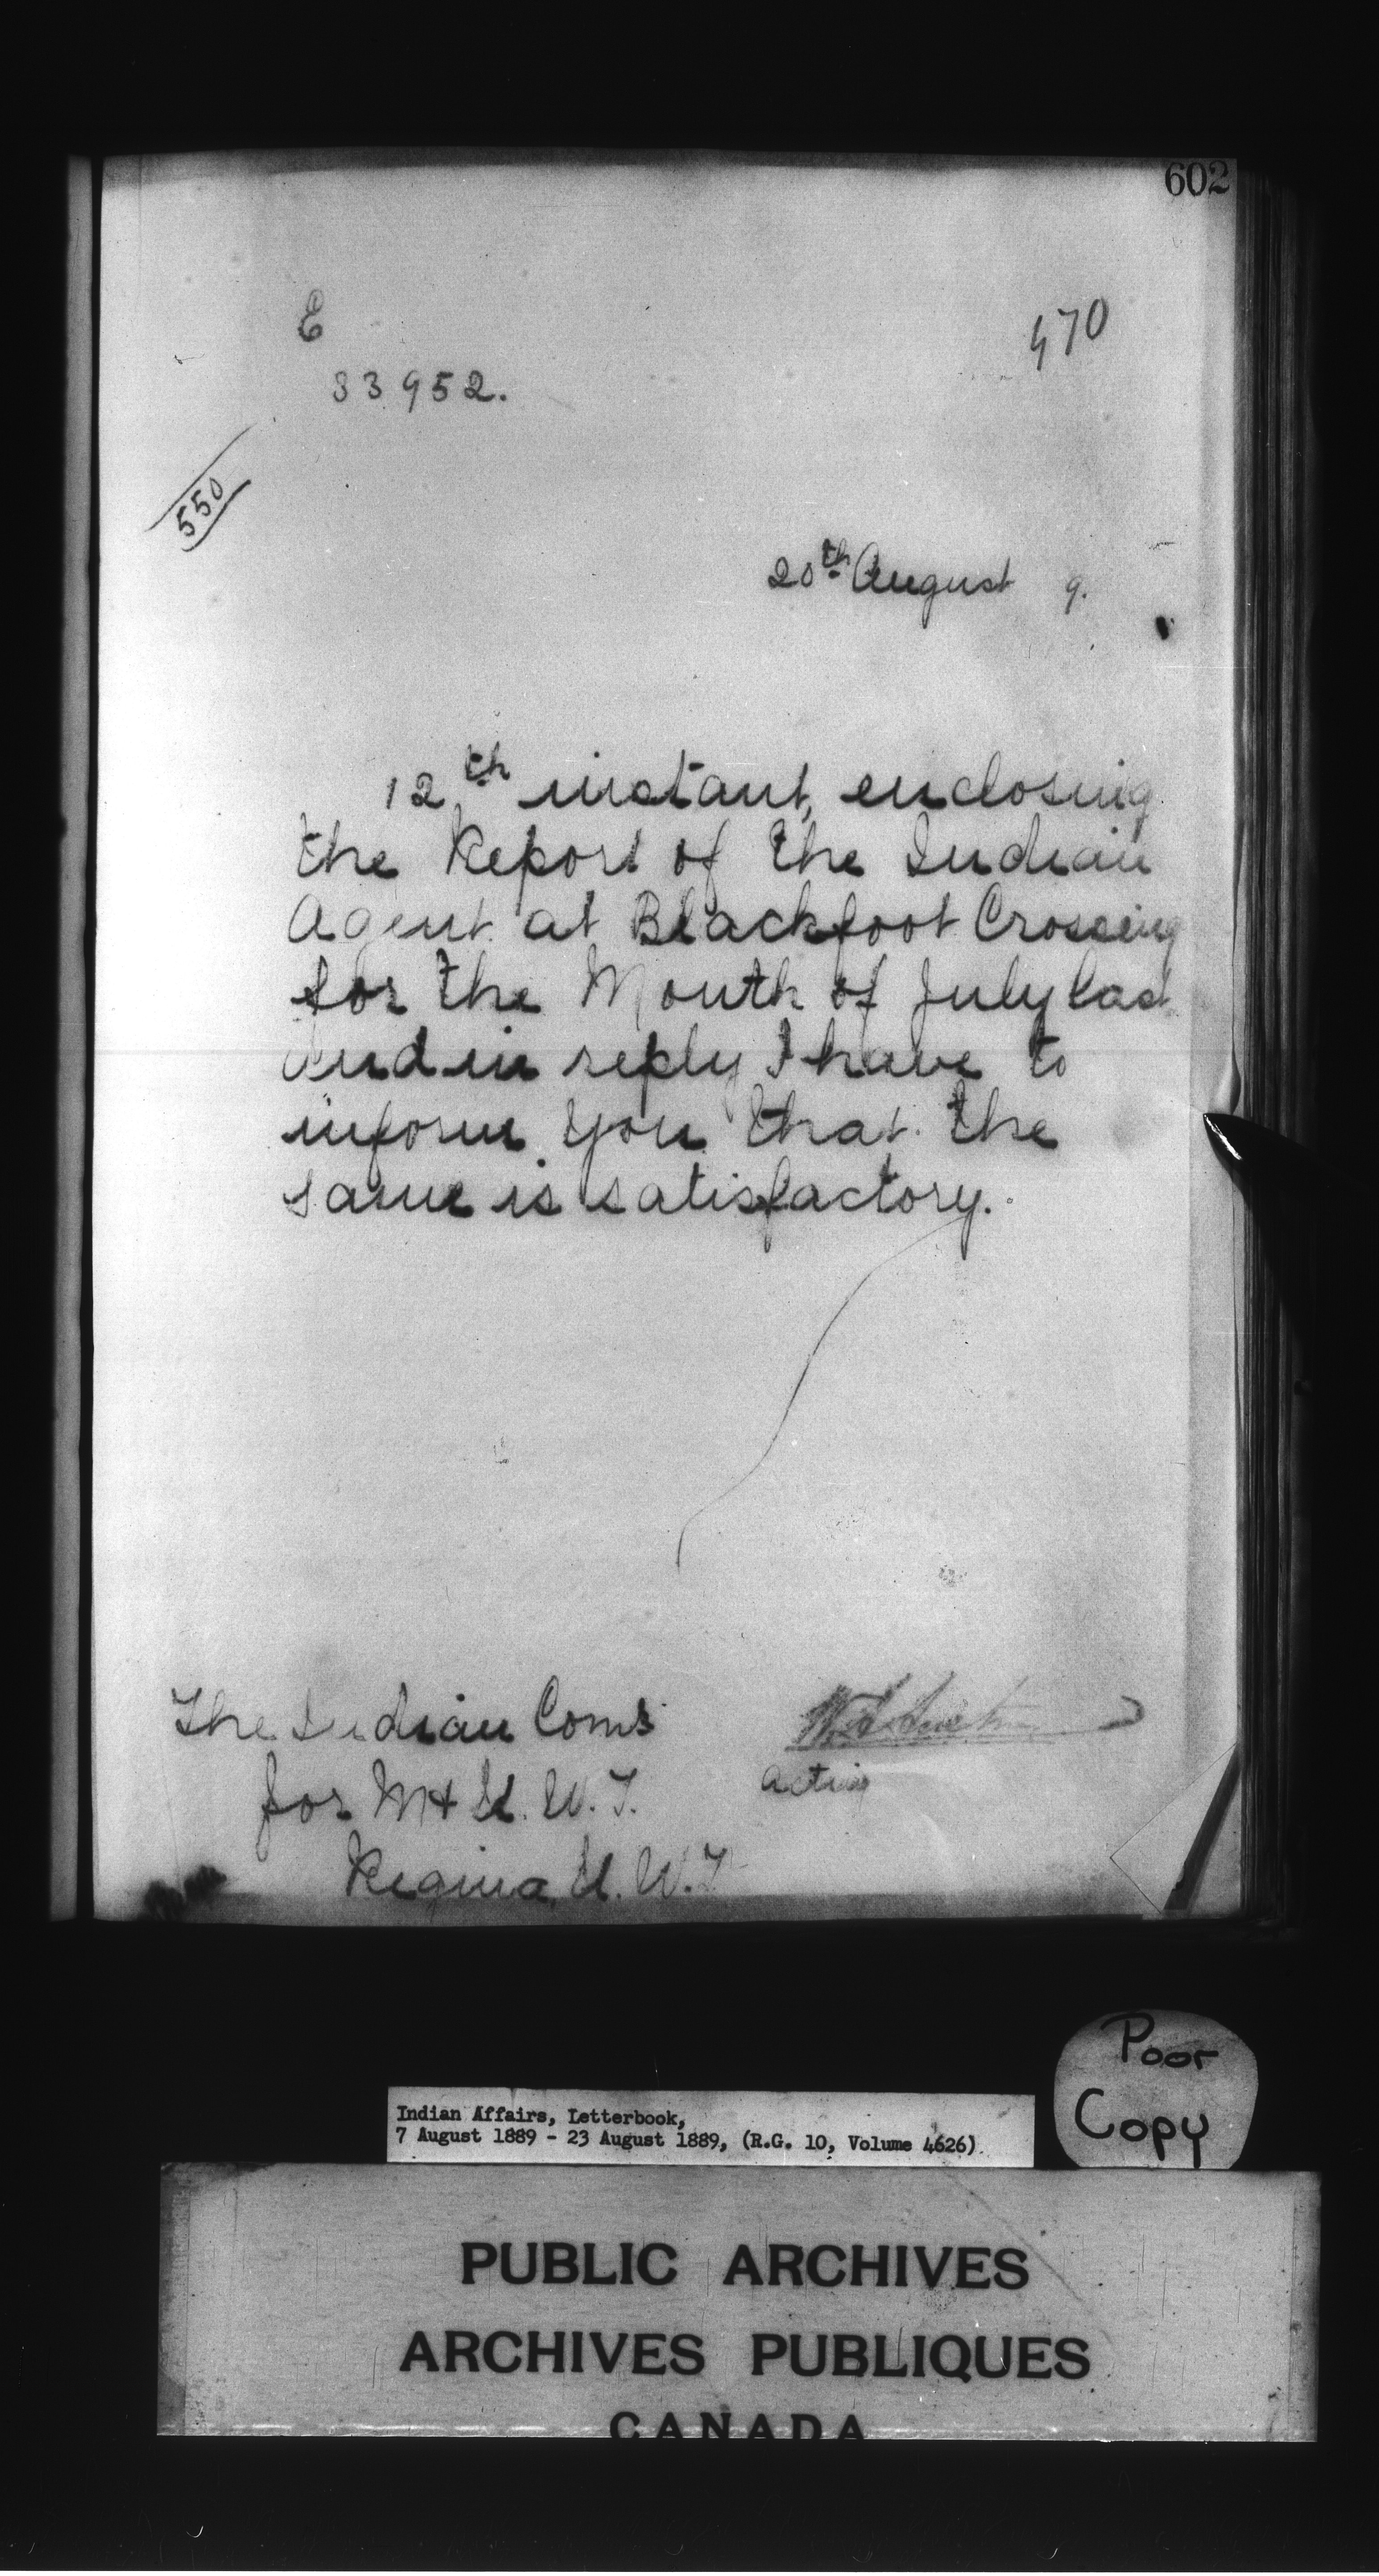 602
E
470
33952.
550
20th August 9.
12th instant, enclosing
the Report of the Indian
Agent at Blackfoot Crossing
for the Month of July last
and in reply I have to
inform you that the
same is satisfactory.
The Indian Coms
for M & N. W. T.
acting
Regina, N. W. T
Poor
Copy
Indian Affairs, Letterbook,
7 August 1889 - 23 August 1889, (R.G. 10, Volume 4626)
PUBLIC ARCHIVES
ARCHIVES PUBLIQUES
CANADA